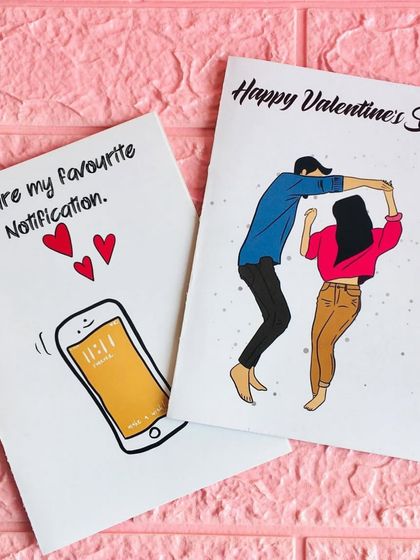 are my favourite
Notification.
11:11
make a wish
Happy Valentine's